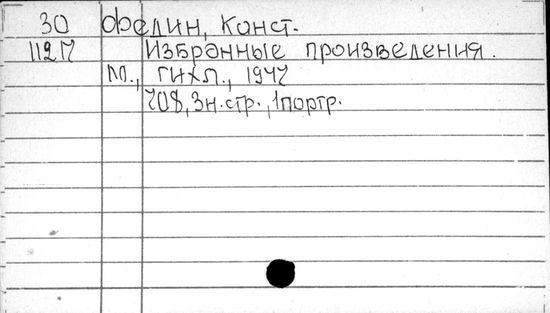 30 Федин, Конст.
112П Избранные произведения.
М., ГИХЛ, 1947
708, 3н.стр., 1портр.